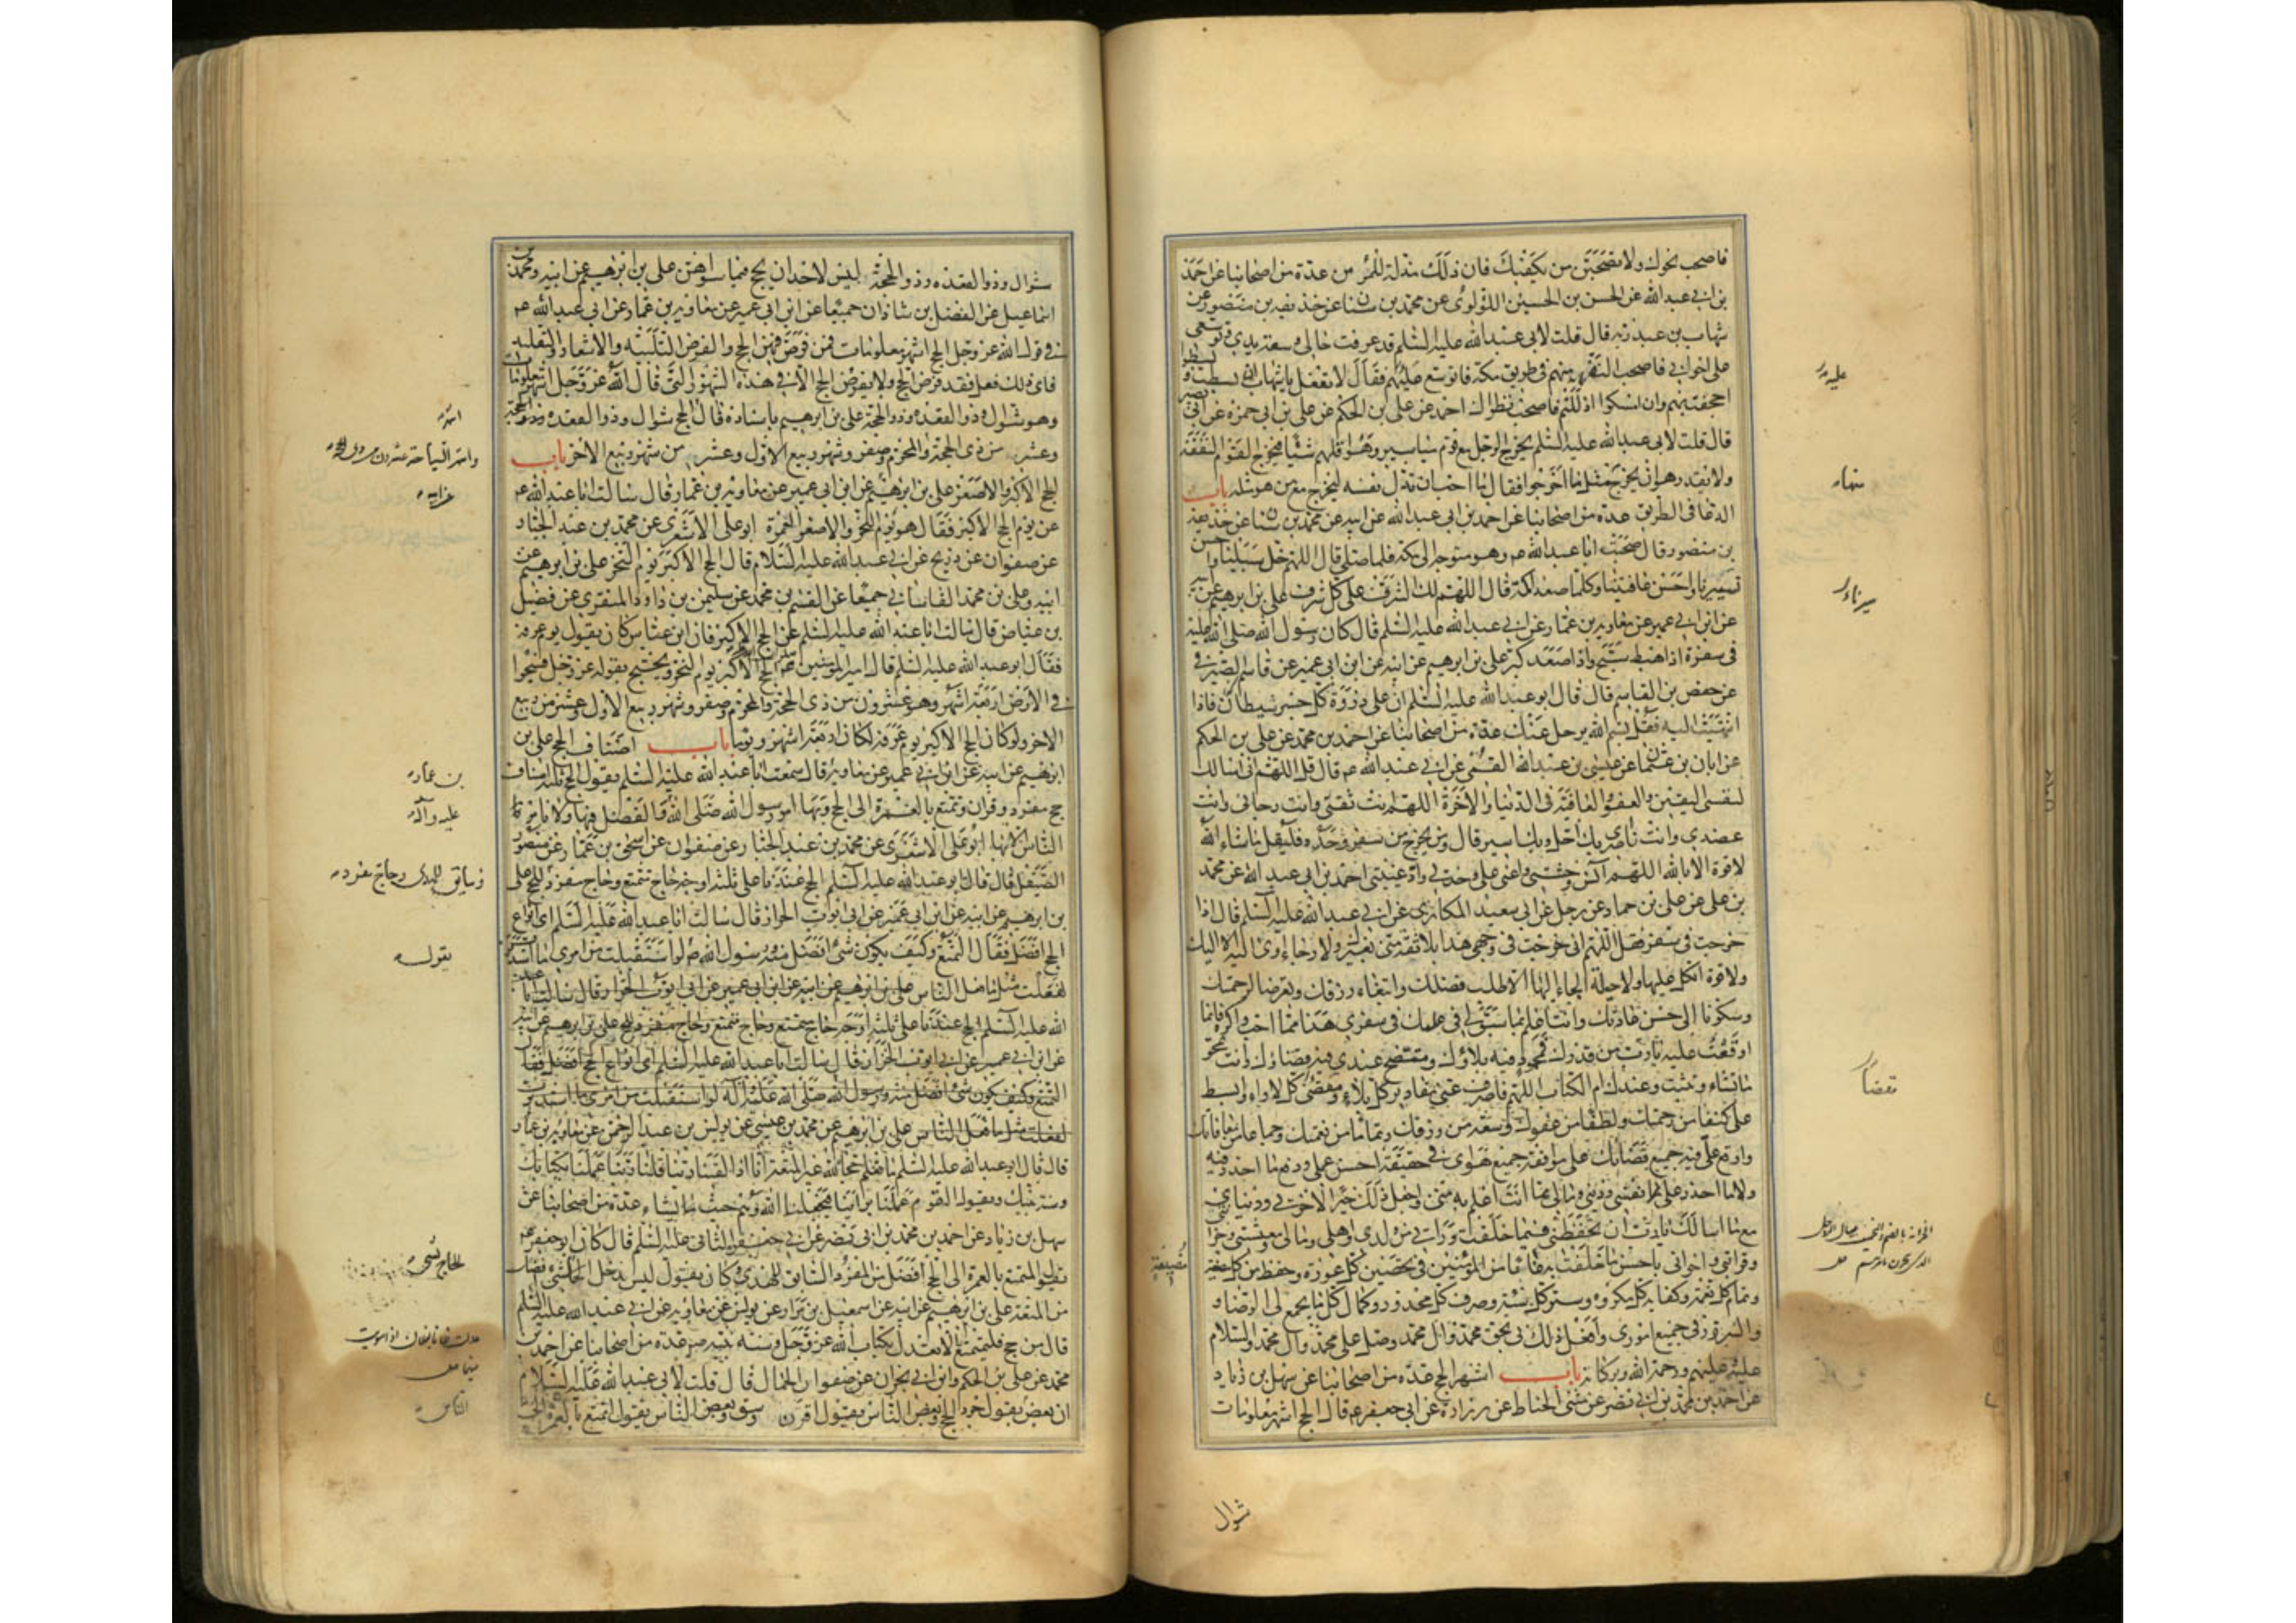 فاصحب نحوك ولا تصحبن من يكفيك فان ذلك مذلة للمؤمن عدة من اصحابنا عن احمد
بن ابي عبد الله عن الحسن بن الحسين اللؤلؤى عن محمد بن سنان عن حذيفه بن منصور عن
شهاب بن عبد ربه قال قلت لابي عبد الله عليه السلم قد عرفت حالي وسعة يدي وتوسعى
على اخواني فاصحب النفر منهم فى طريق مكة فاتوسع عليهم فقال لا تفعل يا شهاب ان بسطت و بسطوا
اجحفت بهم وان امسكوا اذللتهم فاصحب نظراك احمد عن على بن الحكم عن على بن ابي حمزة عن ابي بصير
قال قلت لابي عبد الله عليه السلم يخرج الرجل مع قوم مياسير وهو اقلهم شيئا فيخرج القوم النفقة
ولا يقدر هو ان يخرج مثل ما اخرجوا فقال ما احب ان يذل نفسه ليخرج مع من هو مثله باب
الدعا فى الطريق عدة من اصحابنا عن احمد بن ابي عبد الله عن ابيه عن محمد بن سنان عن حذيفة
بن منصور قال صحبت ابا عبد الله ع وهو متوجه الى مكة فلما صلى قال اللهم خل سبيلنا واحسن
تسييرنا واحسن عافيتنا وكلما صعد اكمة قال اللهم لك الشرف على كل شرف على بن ابرهيم عن ابيه
عن ابن ابي عمير عن معاوية بن عمار عن ابي عبد الله عليه السلم قال كان رسول الله صلى الله عليه
فى سفره اذا هبط سبح واذا صعد كبر على بن ابرهيم عن ابيه عن ابن ابي عمير عن قاسم الصيرفى
عن حفص بن القاسم قال قال ابو عبد الله عليه السلم ان على ذروة كل جسر شيطان فاذا
انتهيت اليه فقل بسم الله يرحل عنك عدة من اصحابنا عن احمد بن محمد عن على بن الحكم
عن ابان بن عثمان عن عيسى بن عبد الله القمى عن ابي عبد الله ع قال قل اللهم انى اسالك
لنفسى اليقين والعفو والعافية فى الدنيا والاخرة اللهم انت ثقتى وانت رجائى وانت
عضدى وانت ناصرى بك احل وبك اسير قال ومن يخرج من سفر وحده فليقل ما شاء الله
لا قوة الا بالله اللهم آنس وحشتى واعنى على وحدتى واد غيبتى احمد بن ابي عبد الله عن محمد
بن على عن على بن حماد عن رجل عن ابي سعيد المكارى عن ابي عبد الله عليه السلم قال اذا
خرجت فى سفر فقل اللهم انى خرجت فى وجهى هذا بلا ثقة منى بغيرك ولا رجاء اوى اليه الا اليك
ولا قوة اتكل عليها ولا حيلة الجاء اليها الا طلب فضلك وابتغاء رزقك وتعرضا لرحمتك
وسكونا الى حسن عادتك وانت اعلم بما سبق لى فى علمك فى سفرى هذا مما احب واكره فانما
اوقعت عليه يا رب من قدرك فمحمود فيه بلاؤك ومتضح عندي فيه قضاؤك وانت تمحو
ما تشاء وتثبت وعندك ام الكتاب اللهم فاصرف عنى مقادير كل بلاء ومقضى كل لاواء وابسط
على كنفا من رحمتك ولطفا من عفوك وسعة من رزقك وتماما من نعمتك وجماعا من معافاتك
واوقع على فيه جميع قضائك على موافقة جميع هواى فى حقيقة احسن عملى ودفع ما احذر فيه
ولا ما احذر على نفسى ودينى ومالى مما انت اعلم به منى واجعل ذلك خيرا لاخرتى ودنياى
مع ما اسالك يا رب ان تحفظنى فيما خلفت وراى من ولدى واهلى ومالى ومعيشتى وحزانتى
وقرابتى واخوانى باحسن ما خلفت به غائبا من المؤمنين فى تحصين كل عورة وحفظ من كل مضيعة
وتمام كل نعمة وكفاية كل مكروه وستر كل سيئة وصرف كل محذور وكمال كل ما يجمع لى الرضا و
والسرور فى جميع امورى وافعل ذلك بى بحق محمد وال محمد وصل على محمد وال محمد والسلام
عليه وعليهم ورحمة الله وبركاته باب اشهر الحج عدة من اصحابنا عن سهل بن زياد
عن احمد بن محمد بن ابي نصر عن مثنى الحناط عن زرارة عن ابي جعفر ع قال الحج اشهر معلومات
شوال
عليه
منها
سيرنا
مقضا
مضيعة
شوال وذو القعده وذو الحجة ليس لاحد ان يحج فيما سواهن على بن ابرهيم عن ابيه ومحمد بن
اسماعيل عن الفضل بن شاذان جميعا عن ابن ابي عمير عن معاوية بن عمار عن ابي عبد الله ع
فى قول الله عز وجل الحج اشهر معلومات فمن فرض فيهن الحج والفرض التلبية والاشعار والتقليد
فاى ذلك فعل فقد فرض الحج ولا يفرض الحج الا فى هذه الشهور التى قال الله عز وجل اشهر معلومات
وهو شوال وذو القعده وذو الحجة على بن ابرهيم باسناده قال الحج شوال وذو القعده وذو الحجة
وعشر من ذى الحجة والمحرم وصفر وشهر ربيع الاول وعشر من شهر ربيع الاخر باب
الحج الاكبر والاصغر على بن ابرهيم عن ابن ابي عمير عن معاوية بن عمار قال سالت ابا عبد الله ع
عن يوم الحج الاكبر فقال هو يوم النحر والاصغر العمرة ابو على الاشعرى عن محمد بن عبد الجبار
عن صفوان عن ذريح عن ابي عبد الله عليه السلام قال الحج الاكبر يوم النحر على بن ابرهيم عن
ابيه وعلى بن محمد القاسانى جميعا عن القسم بن محمد عن سليمن بن داود المنقرى عن فضيل
بن عياض قال سالت ابا عبد الله عليه السلم عن الحج الاكبر فان ابن عباس كان يقول يوم عرفة
فقال ابو عبد الله عليه السلم قال امير المؤمنين الحج الاكبر يوم النحر ويحتج بقوله عز وجل فسيحوا
فى الارض اربعة اشهر وهو عشرون من ذى الحجة والمحرم وصفر وشهر ربيع الاول وعشر من ربيع
الاخر ولو كان الحج الاكبر يوم عرفة لكان اربعة اشهر ويوما باب اصناف الحج على بن
ابرهيم عن ابيه عن ابن ابي عمير عن معاوية قال سمعت ابا عبد الله عليه السلم يقول الحج ثلثة اصناف
حج مفرد وقران وتمتع بالعمرة الى الحج وبها امر رسول الله صلى الله والفضل فيها ولا نامر
الناس الا بها ابو على الاشعرى عن محمد بن عبد الجبار عن صفوان عن اسحق بن عمار عن منصور
الصيقل قال قال ابو عبد الله عليه السلم الحج عندنا على ثلثة اوجه حاج متمتع وحاج مفرد للحج على
بن ابرهيم عن ابيه عن ابن ابي عمير عن ابي ايوب الخزاز قال سالت ابا عبد الله عليه السلم اى انواع
الحج افضل فقال التمتع وكيف يكون شئ افضل منه ورسول الله ص لو استقبلت من امرى ما استدبرت
لفعلت مثل ما فعل الناس على بن ابرهيم عن ابيه عن ابن ابي عمير عن ابي ايوب الخزاز قال سالت ابا عبد
الله عليه السلم الحج عندنا على ثلثة اوجه حاج متمتع وحاج متمتع وحاج مفرد للحج على بن ابرهيم عن ابيه
عن ابن ابي عمير عن ابي ايوب الخزاز قال سالت ابا عبد الله عليه السلم اى انواع الحج افضل فقال
التمتع وكيف يكون شئ افضل منه ورسول الله صلى الله عليه وآله لو استقبلت من امرى ما استدبرت
لفعلت مثل ما فعل الناس على بن ابرهيم عن محمد بن عيسى عن يونس بن عبد الرحمن عن معاوية بن عمار
قال قال ابو عبد الله عليه السلم ما نعلم حجا لله غير المتعة انا اذا لقينا ربنا قلنا ربنا عملنا بكتابك
وسنة نبيك ويقول القوم عملنا براينا فيجعلنا الله واياهم حيث يشاء عدة من اصحابنا عن
سهل بن زياد عن احمد بن محمد بن ابي نصر عن ابي جعفر الثانى عليه السلم قال كان ابو جعفر ع
يقول المتمتع بالعمرة الى الحج افضل من المفرد السائق للهدى وكان يقول ليس يدخل بشئ افضل
من المتعة على بن ابرهيم عن ابيه عن اسمعيل بن مرار عن يونس عن معاوية عن ابي عبد الله عليه السلم
قال من حج فليتمتع انا لا نعدل بكتاب الله عز وجل وسنة نبيه ص عدة من اصحابنا عن احمد بن
محمد عن على بن الحكم وابن ابي نجران عن صفوان الجمال قال قلت لابي عبد الله عليه السلام
ان بعض يقول جرد الحج وبعض الناس يقول اقرن وسق وبعض الناس يقول تمتع بالعمرة الى الحج
بن عمار
عليه وآله
وسائق للهدى وحاج مفرد
يقول
للحاج بشئ
الناس